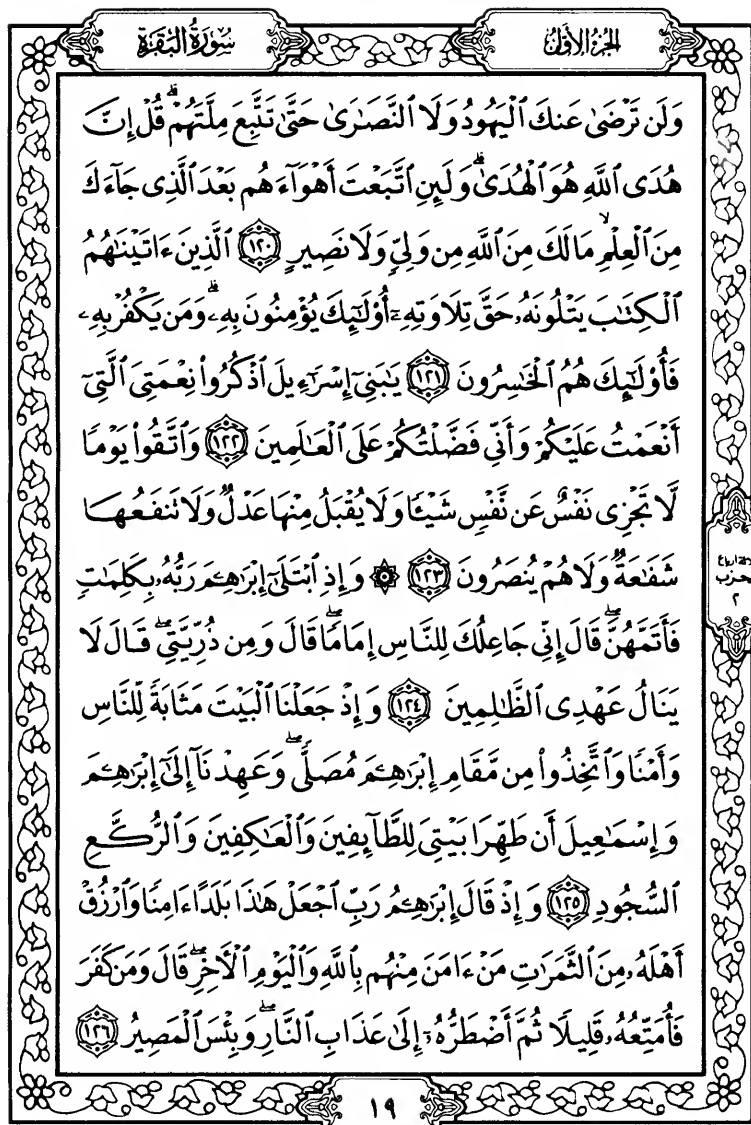 الجزء الأول
سورة البقرة
وَلَن تَرْضَىٰ عَنكَ ٱلْيَهُودُ وَلَا ٱلنَّصَٰرَىٰ حَتَّىٰ تَتَّبِعَ مِلَّتَهُمْ ۗ قُلْ إِنَّ
هُدَى ٱللَّهِ هُوَ ٱلْهُدَىٰ ۗ وَلَئِنِ ٱتَّبَعْتَ أَهْوَآءَهُم بَعْدَ ٱلَّذِى جَآءَكَ
مِنَ ٱلْعِلْمِ ۙ مَا لَكَ مِنَ ٱللَّهِ مِن وَلِىٍّ وَلَا نَصِيرٍ ١٢٠ ٱلَّذِينَ ءَاتَيْنَٰهُمُ
ٱلْكِتَٰبَ يَتْلُونَهُۥ حَقَّ تِلَاوَتِهِۦٓ أُو۟لَٰٓئِكَ يُؤْمِنُونَ بِهِۦ ۗ وَمَن يَكْفُرْ بِهِۦ
فَأُو۟لَٰٓئِكَ هُمُ ٱلْخَٰسِرُونَ ١٢١ يَٰبَنِىٓ إِسْرَٰٓءِيلَ ٱذْكُرُوا۟ نِعْمَتِىَ ٱلَّتِىٓ
أَنْعَمْتُ عَلَيْكُمْ وَأَنِّى فَضَّلْتُكُمْ عَلَى ٱلْعَٰلَمِينَ ١٢٢ وَٱتَّقُوا۟ يَوْمًا
لَّا تَجْزِى نَفْسٌ عَن نَّفْسٍ شَيْـًٔا وَلَا يُقْبَلُ مِنْهَا عَدْلٌ وَلَا تَنفَعُهَا
شَفَٰعَةٌ وَلَا هُمْ يُنصَرُونَ ١٢٣ ۞ وَإِذِ ٱبْتَلَىٰٓ إِبْرَٰهِـۧمَ رَبُّهُۥ بِكَلِمَٰتٍ
فَأَتَمَّهُنَّ ۖ قَالَ إِنِّى جَاعِلُكَ لِلنَّاسِ إِمَامًا ۖ قَالَ وَمِن ذُرِّيَّتِى ۖ قَالَ لَا
يَنَالُ عَهْدِى ٱلظَّٰلِمِينَ ١٢٤ وَإِذْ جَعَلْنَا ٱلْبَيْتَ مَثَابَةً لِّلنَّاسِ
وَأَمْنًا وَٱتَّخِذُوا۟ مِن مَّقَامِ إِبْرَٰهِـۧمَ مُصَلًّى ۖ وَعَهِدْنَآ إِلَىٰٓ إِبْرَٰهِـۧمَ
وَإِسْمَٰعِيلَ أَن طَهِّرَا بَيْتِىَ لِلطَّآئِفِينَ وَٱلْعَٰكِفِينَ وَٱلرُّكَّعِ
ٱلسُّجُودِ ١٢٥ وَإِذْ قَالَ إِبْرَٰهِـۧمُ رَبِّ ٱجْعَلْ هَٰذَا بَلَدًا ءَامِنًا وَٱرْزُقْ
أَهْلَهُۥ مِنَ ٱلثَّمَرَٰتِ مَنْ ءَامَنَ مِنْهُم بِٱللَّهِ وَٱلْيَوْمِ ٱلْـَٔاخِرِ ۖ قَالَ وَمَن كَفَرَ
فَأُمَتِّعُهُۥ قَلِيلًا ثُمَّ أَضْطَرُّهُۥٓ إِلَىٰ عَذَابِ ٱلنَّارِ ۖ وَبِئْسَ ٱلْمَصِيرُ ١٢٦
حزب
٢
١٩